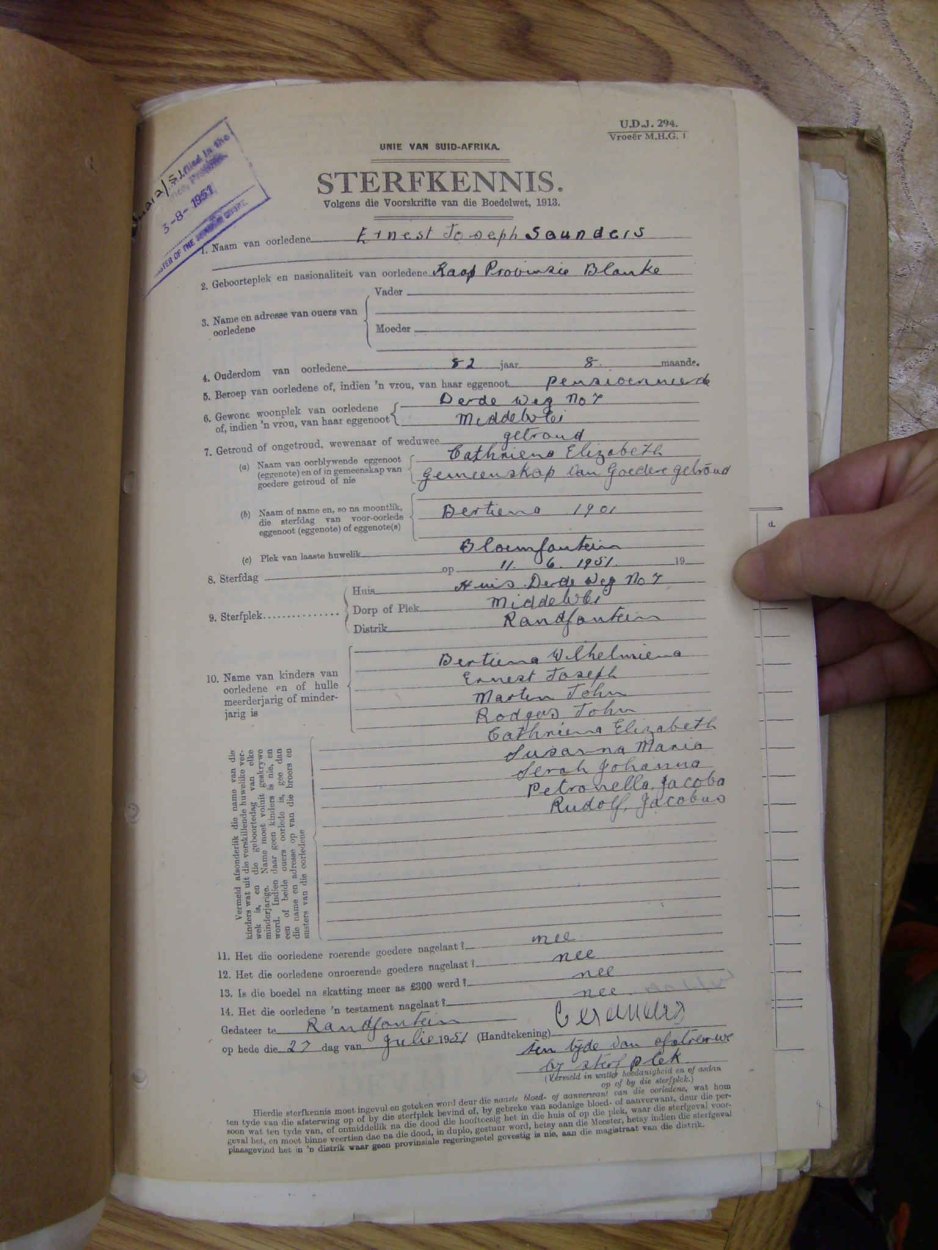 U.D.J. 294.
Vroeër M.H.G. 1
UNIE VAN SUID-AFRIKA.
filed in the
3-8-1951
STERFKENNIS.
Volgens die Voorskrifte van die Boedelwet, 1913.
1. Naam van oorledene Ernest Joseph Saunders
2. Geboorteplek en nasionaliteit van oorledene Kaap Provinsie Blanke
3. Name en adresse van ouers van oorledene
Vader
Moeder
4. Ouderdom van oorledene 82 jaar 8 maande.
5. Beroep van oorledene of, indien 'n vrou, van haar eggenoot pensioenneerde
6. Gewone woonplek van oorledene of, indien 'n vrou, van haar eggenoot
Derde Weg No 7
Middelvlei
7. Getroud of ongetroud, wewenaar of weduwee getroud
(a) Naam van oorblywende eggenoot (eggenote) en of in gemeenskap van goedere getroud of nie
Cathriena Elizabeth
Gemeenskap van Goedere getroud
(b) Naam of name en, so na moontlik, die sterfdag van voor-oorlede eggenoot (eggenote) of eggenote(s)
Bertiena 1901
(c) Plek van laaste huwelik Bloemfontein
8. Sterfdag op 11. 6. 1951. 19
9. Sterfplek
Huis Huis Derde Weg No 7
Dorp of Plek Middelvlei
Distrik Randfontein
10. Name van kinders van oorledene en of hulle meerderjarig of minderjarig is
Bertiena Wilhelmiena
Ernest Joseph
Martin John
Rodges John
Cathriena Elizabeth
Susanna Maria
Serah Johanna
Petronella Jacoba
Rudolf Jacobus
Vermeld afsonderlik die name van die
kinders wat uit die verskillende huwelike verwek
is, en die geboortedag van elke
minderjarige. Name moet voluit geskrywe
word. Indien daar geen kinders is nie, en
een of beide ouers oorlede is, gee dan
die name en adresse op van die broers en
susters van die oorledene
11. Het die oorledene roerende goedere nagelaat? nee
12. Het die oorledene onroerende goedere nagelaat? nee
13. Is die boedel na skatting meer as £300 werd? nee
14. Het die oorledene 'n testament nagelaat? nee
Gedateer te Randfontein
op hede die 27 dag van Julie 1951 (Handtekening)
ten tyde van afsterwe
by sterfplek
(Vermeld in watter hoedanigheid en of aedan
op of by die sterfplek.)
Hierdie sterfkennis moet ingevul en geteken word deur die naaste bloed- of aanverwant van die oorledene, wat hom
ten tyde van die afsterwing op of by die sterfplek bevind of, by gebreke van sodanige bloed- of aanverwant, deur die persoon
wat ten tyde van, of onmiddellik na die dood die hooftoesig het in die huis of op die plek, waar die sterfgeval voorgeval
het, en moet binne veertien dae na die dood, in duplo, gestuur word, hetsy aan die Meester, hetsy indien die sterfgeval
plaasgevind het in 'n distrik waar geen provinsiale regeringsetel gevestig is nie, aan die magistraat van die distrik.